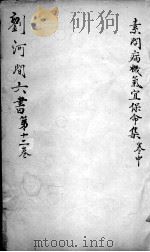 素問病機氣宜保命集卷中
劉河間六書第十二卷